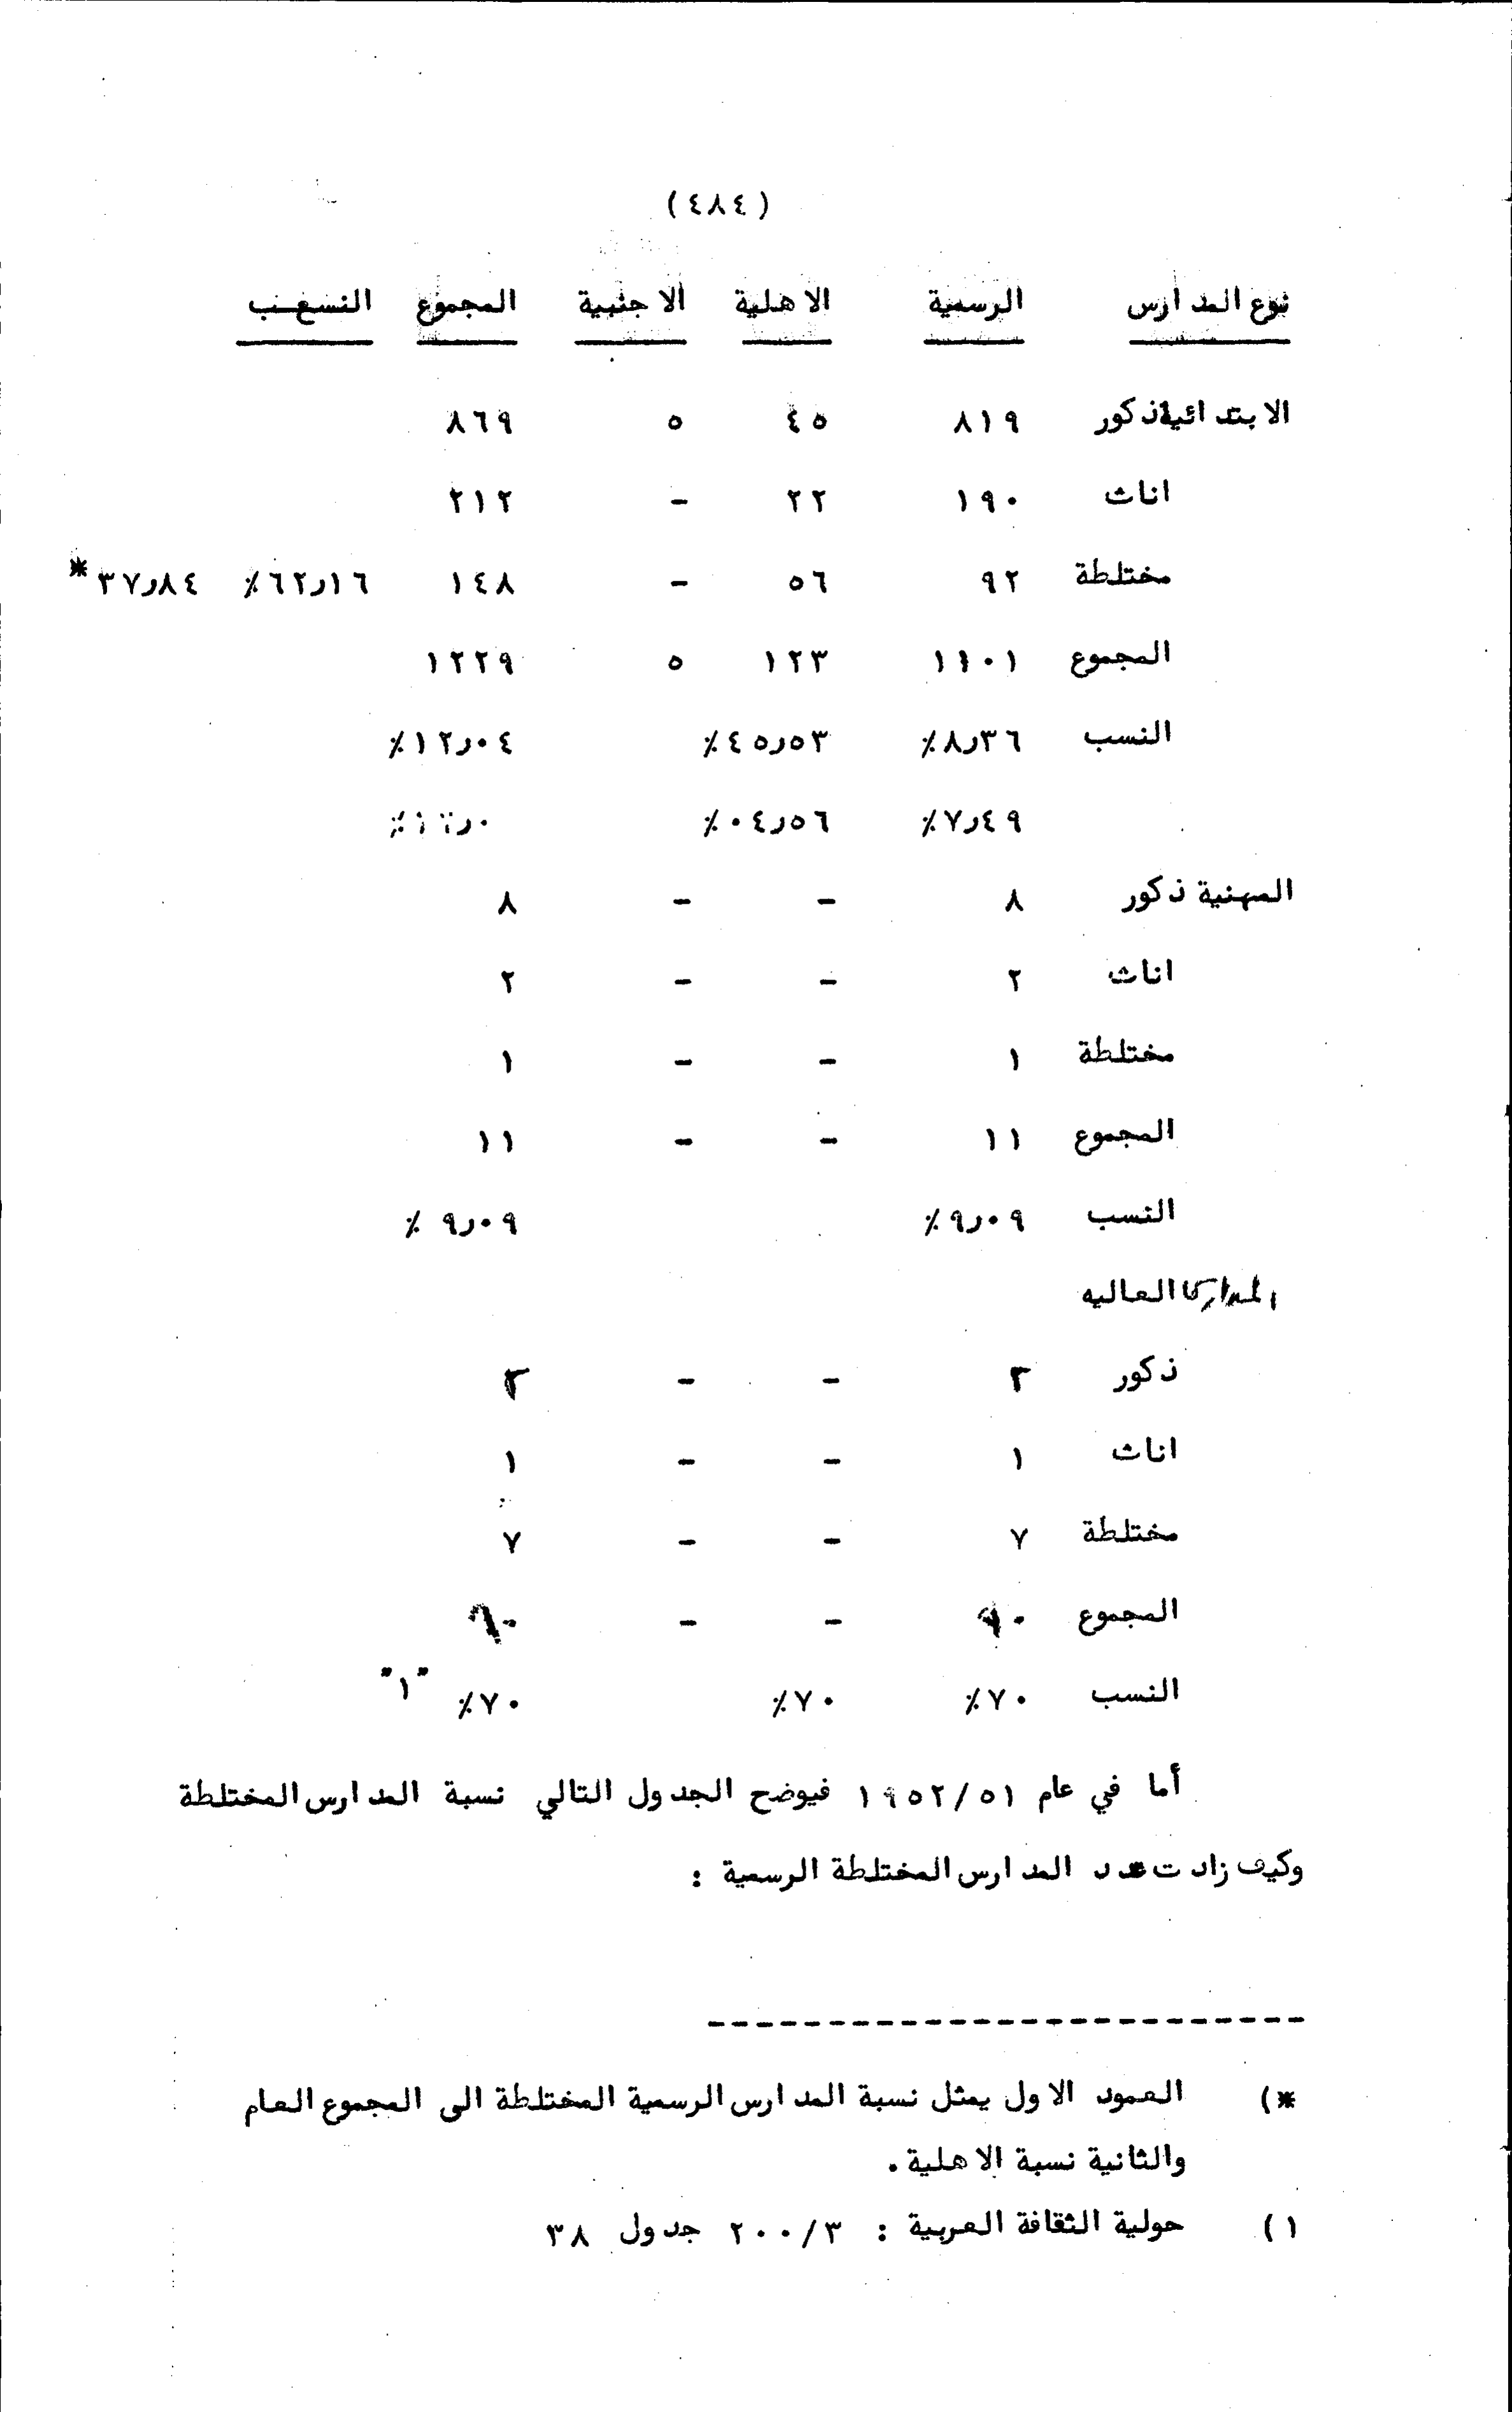 (٤٨٤)
نوع المدارس الرسمية الاهلية الاجنبية المجموع النسب
الابتدائية ذكور ٨١٩ ٤٥ ٥ ٨٦٩
اناث ١٩٠ ٢٢ - ٢١٢
مختلطة ٩٢ ٥٦ - ١٤٨ ٦٢٫١٦٪ ٣٧٫٨٤*
المجموع ١١٠١ ١٢٣ ٥ ١٢٢٩
النسب ٨٫٣٦٪ ٤٥٫٥٣٪ ١٢٫٠٤٪
٧٫٤٩٪ ٠٤٫٥٦٪
المهنية ذكور ٨ - - ٨
اناث ٢ - - ٢
مختلطة ١ - - ١
المجموع ١١ - - ١١
النسب ٩٫٠٩٪ ٩٫٠٩٪
المدارس العاليه
ذكور ٢ - - ٢
اناث ١ - - ١
مختلطة ٧ - - ٧
المجموع - -
النسب ٧٠٪ ٧٠٪ ٧٠٪ "١"
أما في عام ١٩٥٢/٥١ فيوضح الجدول التالي نسبة المدارس المختلطة
وكيف زادت عدد المدارس المختلطة الرسمية :
*) العمود الاول يمثل نسبة المدارس الرسمية المختلطة الى المجموع العام
والثانية نسبة الاهلية .
١) حولية الثقافة العربية : ٢٠٠/٣ جدول ٣٨